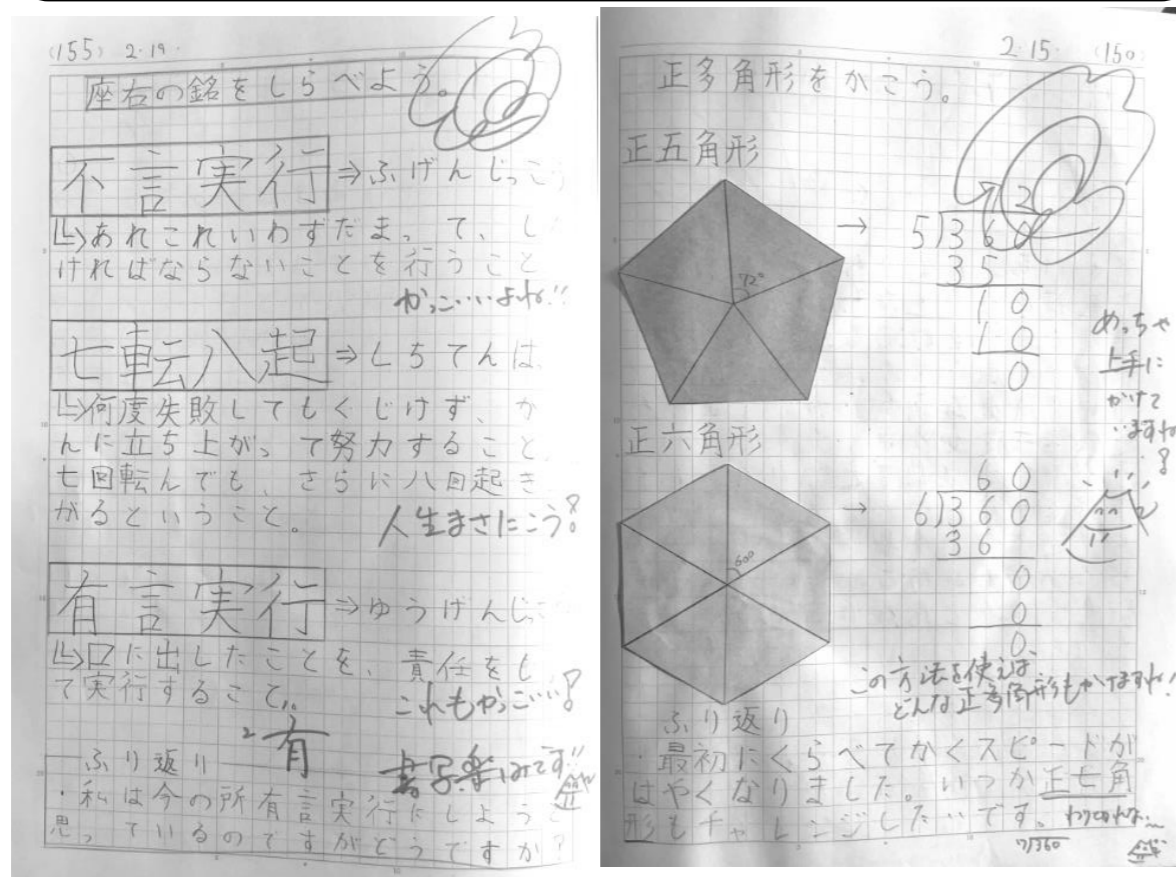 (155) 2·19·
座右の銘をしらべよう。
不言実行⇒ふげんじっこう
↳あれこれいわずだまって、し
ければならないことを行うこと
かっこいいよね!!
七転八起⇒しちてんは
↳何度失敗してもくじけず、か
んに立ち上がって努力すること
七回転んでも、さらに八回起き
がるということ。
人生まさにこう!
有言実行⇒ゆうげんじっ
↳口に出したことを、責任をも
て実行すること。
これもかっこいい!
有
書写楽しみです!!
ふり返り
・私は今の所有言実行にしようと
思っているのですがどうですか?
2·15· (150)
正多角形をかこう。
正五角形
72°
→
5)360
35
10
10
0
めっちゃ
上手に
かけて
いますね!
正六角形
60°
→
60
6)360
36
0
0
0
この方法を使えば、
どんな正多角形もかけますね!
ふり返り
・最初にくらべてかくスピードが
はやくなりました。いつか正七角
形もチャレンジしたいです。
7)360